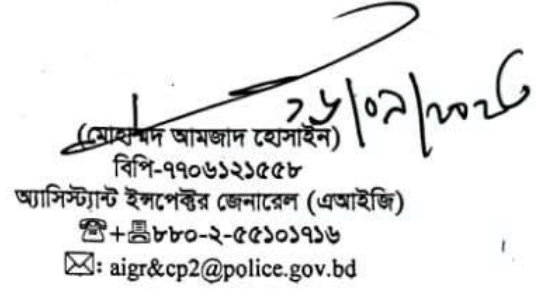 (মোহাম্মদ আমজাদ হোসাইন)
বিপি-৭৭০৬১২১৫৫৮
অ্যাসিস্ট্যান্ট ইন্সপেক্টর জেনারেল (এআইজি)
☎+📠৮৮০-২-৫৫১০১৭১৬
✉: aigr&cp2@police.gov.bd